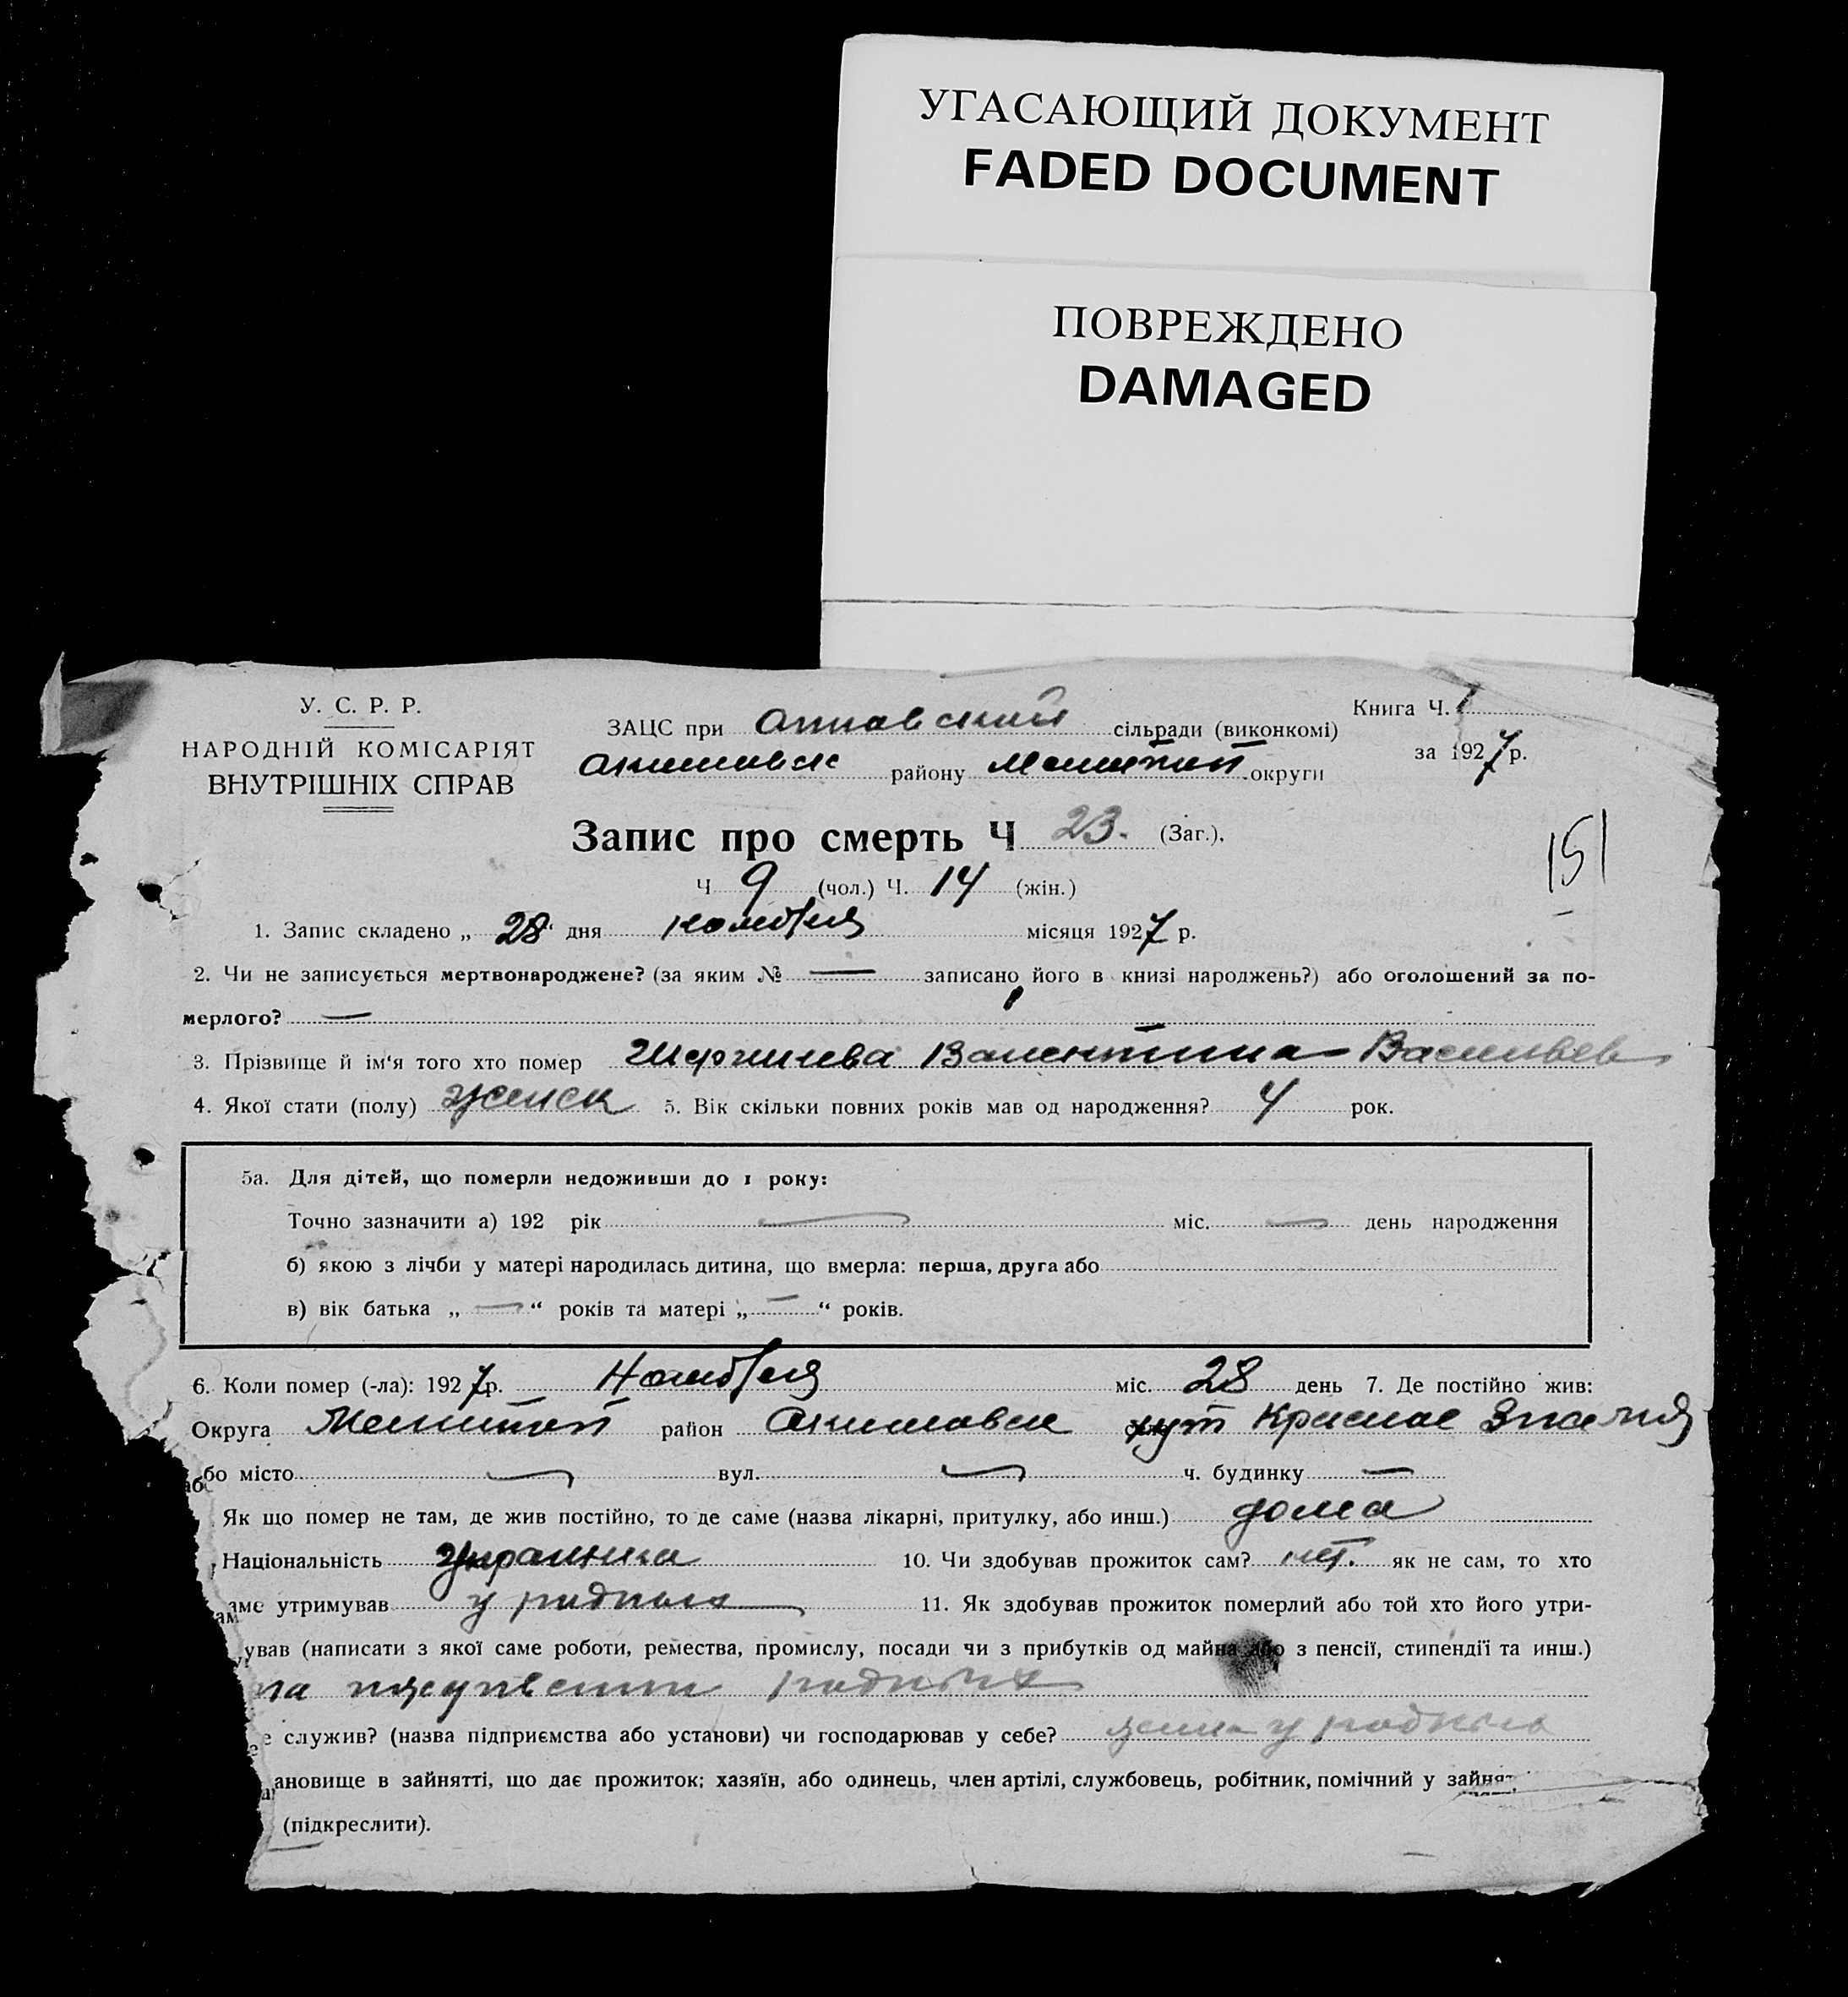 УГАСАЮЩИЙ ДОКУМЕНТ
FADED DOCUMENT
ПОВРЕЖДЕНО
DAMAGED
У. С. Р. Р.
НАРОДНІЙ КОМІСАРІЯТ
ВНУТРІШНІХ СПРАВ
ЗАЦС при сільради (виконкомі)
Акимовск району Мелитоп округи
Книга Ч. 1
за 1927 р.
Запис про смерть Ч 23. (Заг.).
151
Ч 9 (чол.) Ч. 14 (жін.)
1. Запис складено „ 28 " дня ноября місяця 1927 р.
2. Чи не записується мертвонароджене? (за яким № — записано його в книзі народжень?) або оголошений за по-
мерлого? —
3. Прізвище й ім'я того хто помер Валентина Васильев
4. Якої стати (полу) женск 5. Вік скільки повних років мав од народження? 4 рок.
5а. Для дітей, що померли недоживши до 1 року:
Точно зазначити а) 192 рік — міс. — день народження
б) якою з лічби у матері народилась дитина, що вмерла: перша, друга або
в) вік батька „ — " років та матері „ — " років.
6. Коли помер (-ла): 1927 р. Ноября міс. 28 день 7. Де постійно жив:
Округа Мелитоп район Акимовск хут Красное
або місто — вул. — ч. будинку —
Як що помер не там, де жив постійно, то де саме (назва лікарні, притулку, або инш.) дома
Національність Украинка 10. Чи здобував прожиток сам? нет. як не сам, то хто
аме утримував у родных 11. Як здобував прожиток померлий або той хто його утри-
ував (написати з якої саме роботи, ремества, промислу, посади чи з прибутків од майна або з пенсії, стипендії та инш.)
на родных
е служив? (назва підприємства або установи) чи господарював у себе? у родных
ановище в зайнятті, що дає прожиток; хазяїн, або одинець, член артілі, службовець, робітник, помічний у зайнят
(підкреслити).